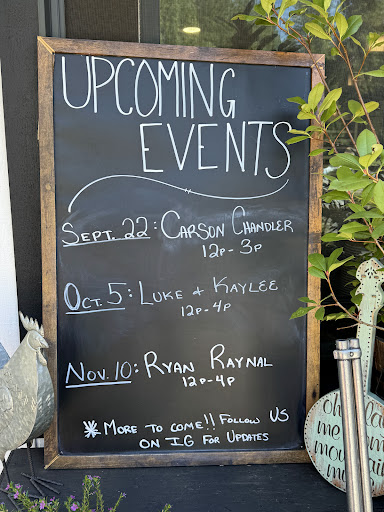 UPCOMING
EVENTS
SEPT. 22: CARSON CHANDLER
12P-3P
OCT. 5: LUKE + KAYLEE
12P-4P
NOV. 10: RYAN RAYNAL
12P-4P
* MORE TO COME!! FOLLOW US
ON IG FOR UPDATES